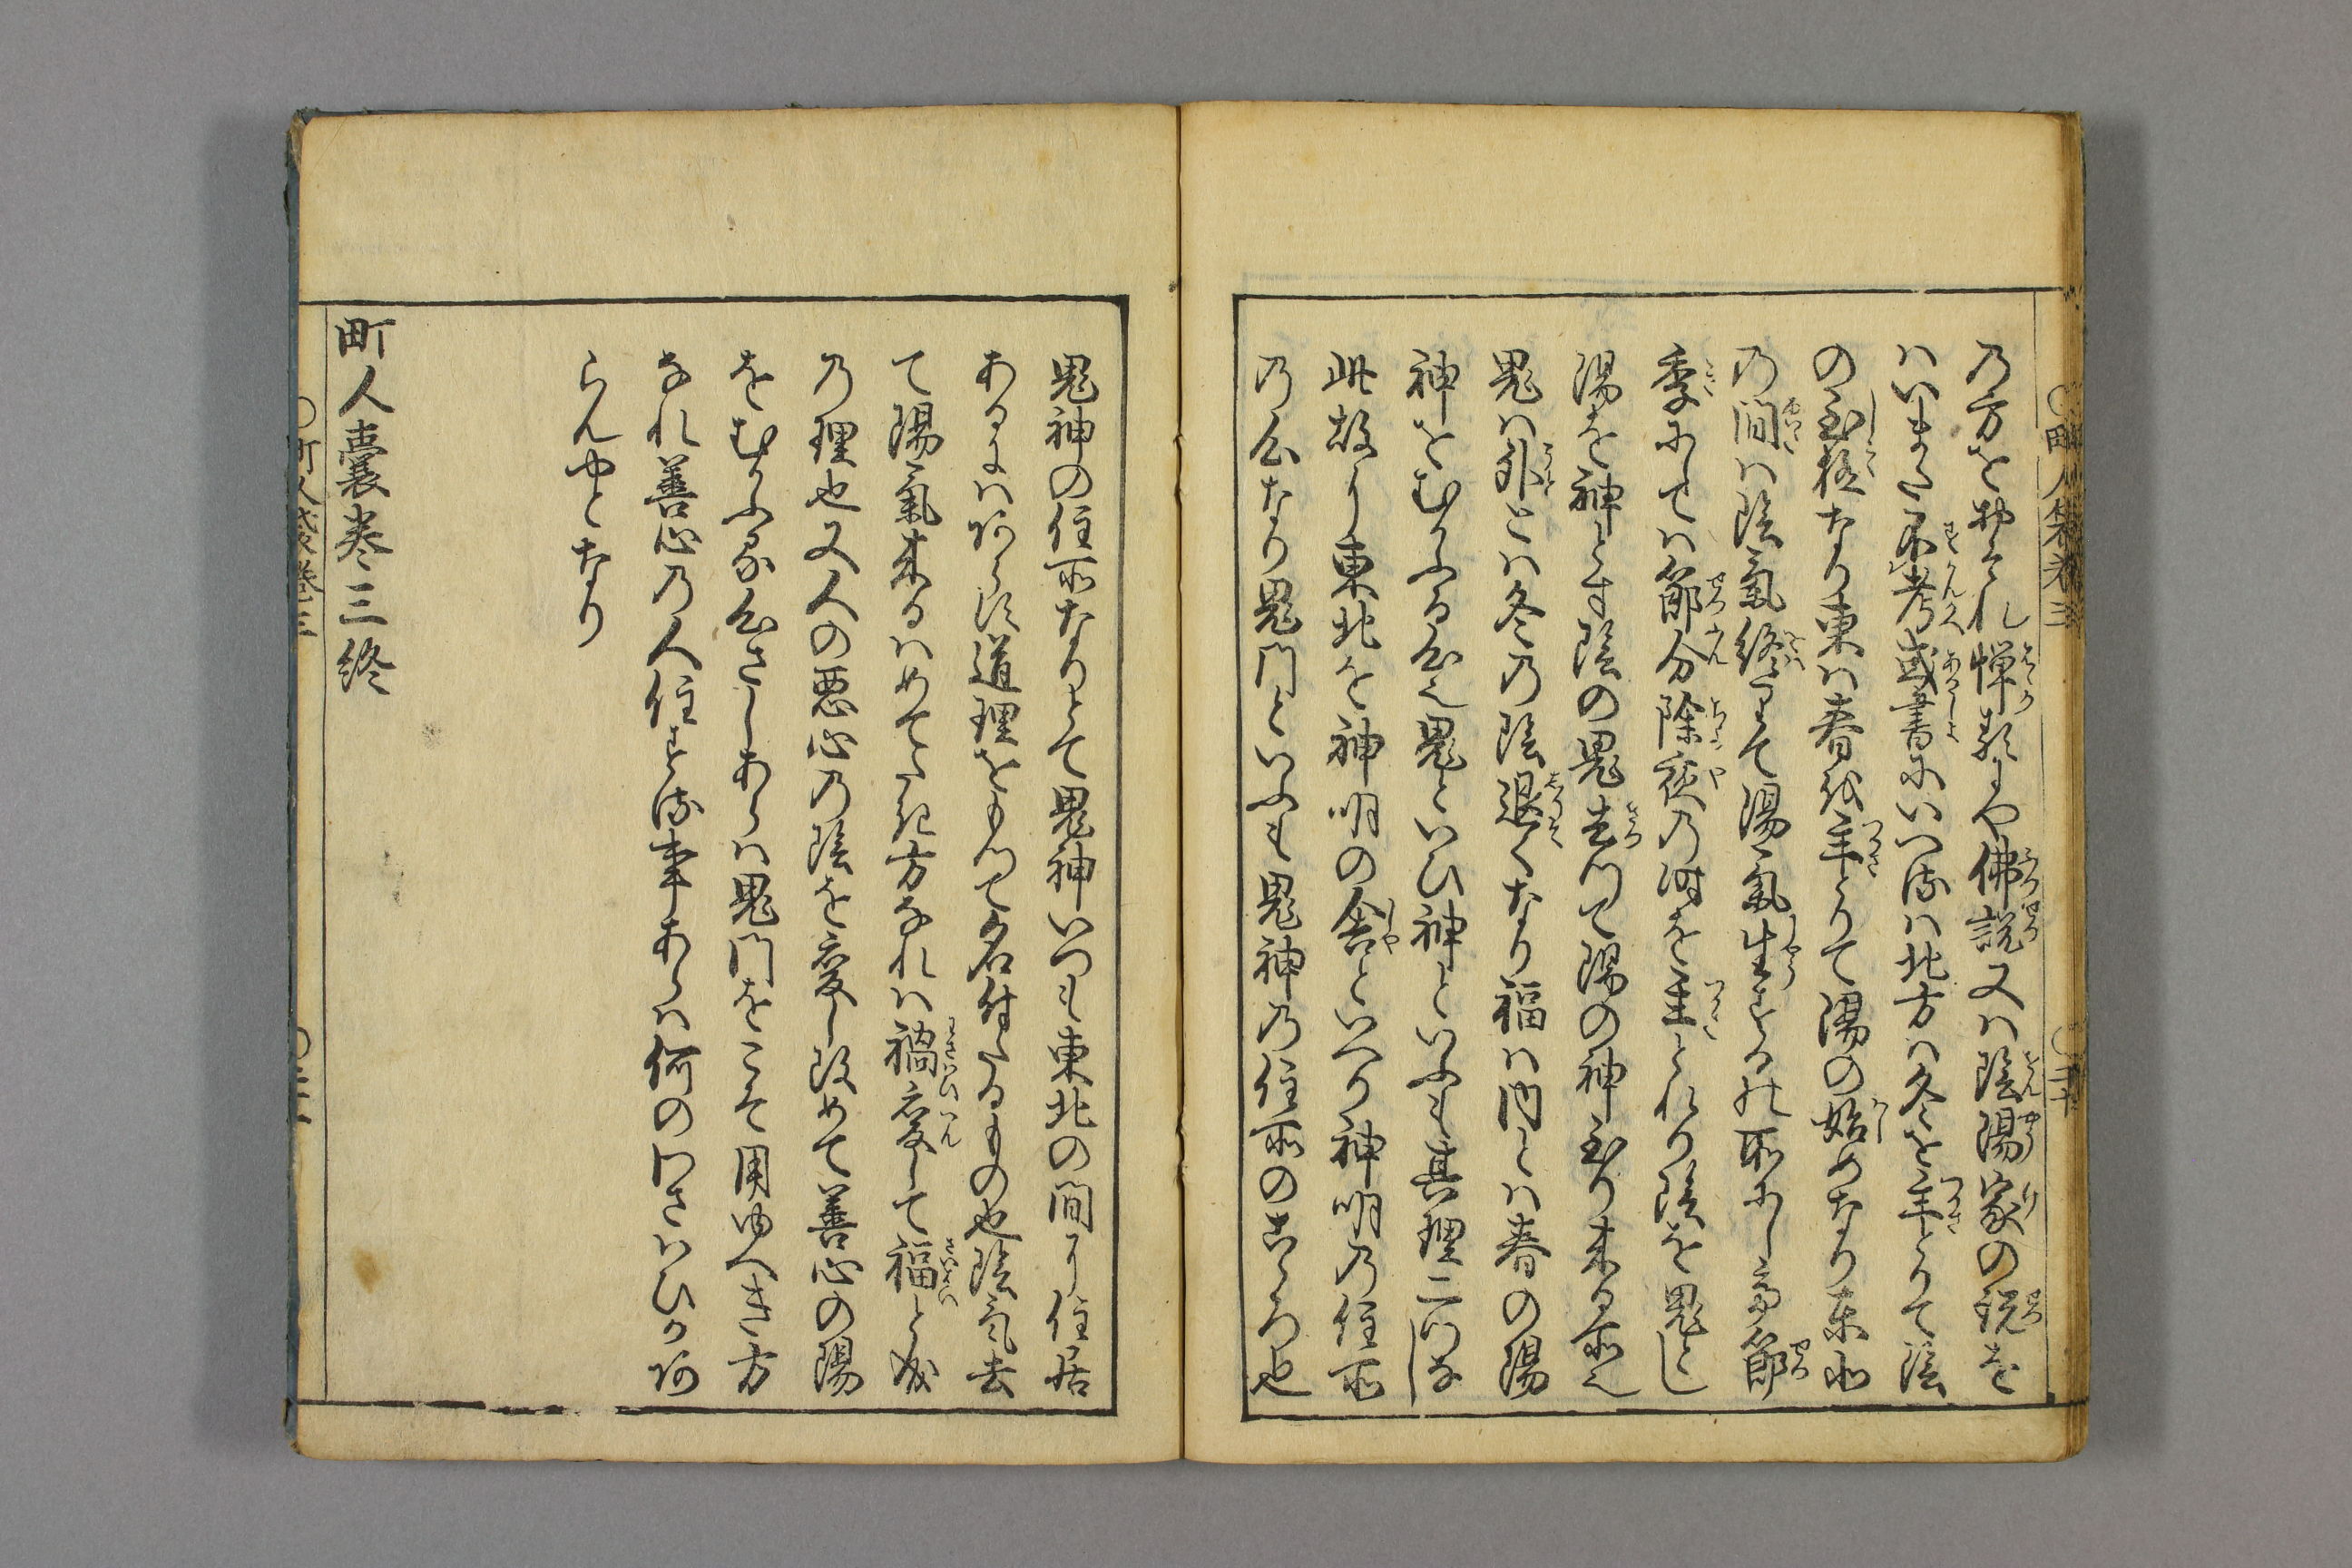 乃方をおそれ憚類にや佛説又ハ陰陽家の説を
ハいまた不考或書にいへるハ北方ハ冬を主とりて陰
の至極なり東ハ春を主とりて陽の始めなり東北
乃間ハ陰氣終て陽氣生する所にし而節
季にしてハ節分除夜乃時を主とれり陰を鬼とし
陽を神とす陰の鬼去つて陽の神至り来る所也
鬼ハ外とハ冬乃陰退くなり福ハ内とハ春の陽
神をむかふる心也鬼といひ神といふも其理二つな
此故に東北を神明の舎といへり神明乃住所
乃心なり鬼門といふも鬼神乃住所のこゝろ也
鬼神の住所なりとて鬼神いつも東北の間に住居
あるにハあらす道理をもつて名付たるもの也陰氣去
て陽氣来るはめてたき方なれハ禍変して福と成
乃理也又人の悪心乃陰を変し改めて善心の陽
をむかふる心さしあらハ鬼門をこそ用ゆへき方
なれ善心乃人住する事あらハ何のわさハひかあ
らんやとなり
町人嚢巻三終